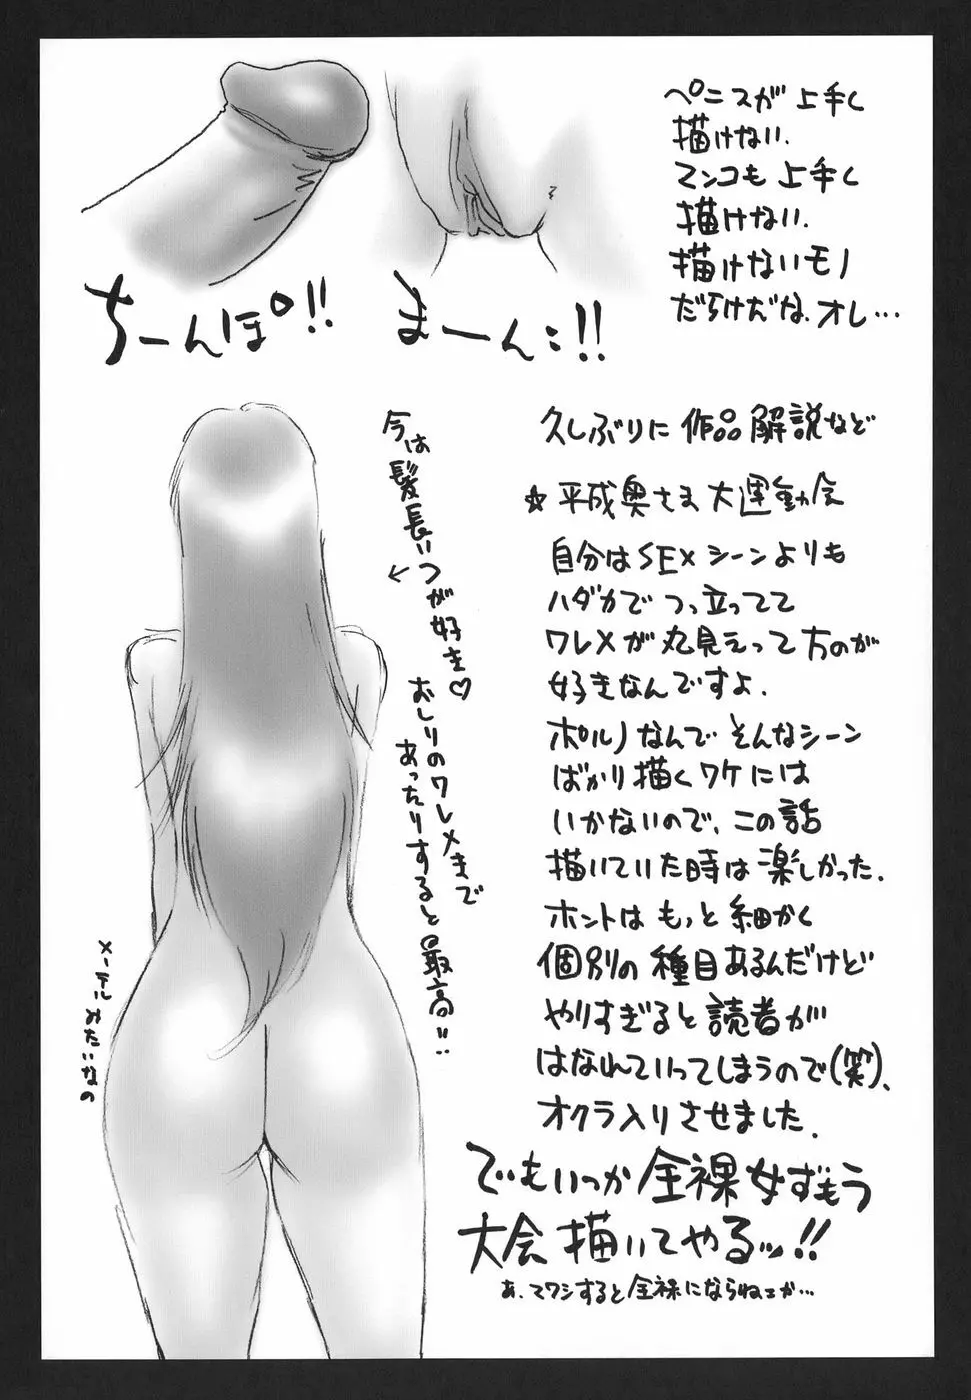 ペニスが上手く
描けない.
マンコも上手く
描けない.
描けないモノ
だらけだな.オレ…
ちーんぽ!!
まーん:!!
久しぶりに作品解説など
☆平成奥さま大運動会
自分はSEXシーンよりも
ハダカでつっ立ってて
ワレメが丸見えって方のが
好きなんですよ.
ポルノなんでそんなシーン
ばかり描くワケには
いかないので、この話
描いていた時は楽しかった.
ホントはもっと細かく
個別の種目あるんだけど
やりすぎると読者が
はなれていってしまうので(笑)、
オクラ入りさせました.
でもいつか全裸女ずもう
大会描いてやるッ!!
あ、マワシすると全裸にならねェか…
今は髪長いつが好き♡
←
おしりのワレメまで
あったりすると最高!!
メーテルみたいなの